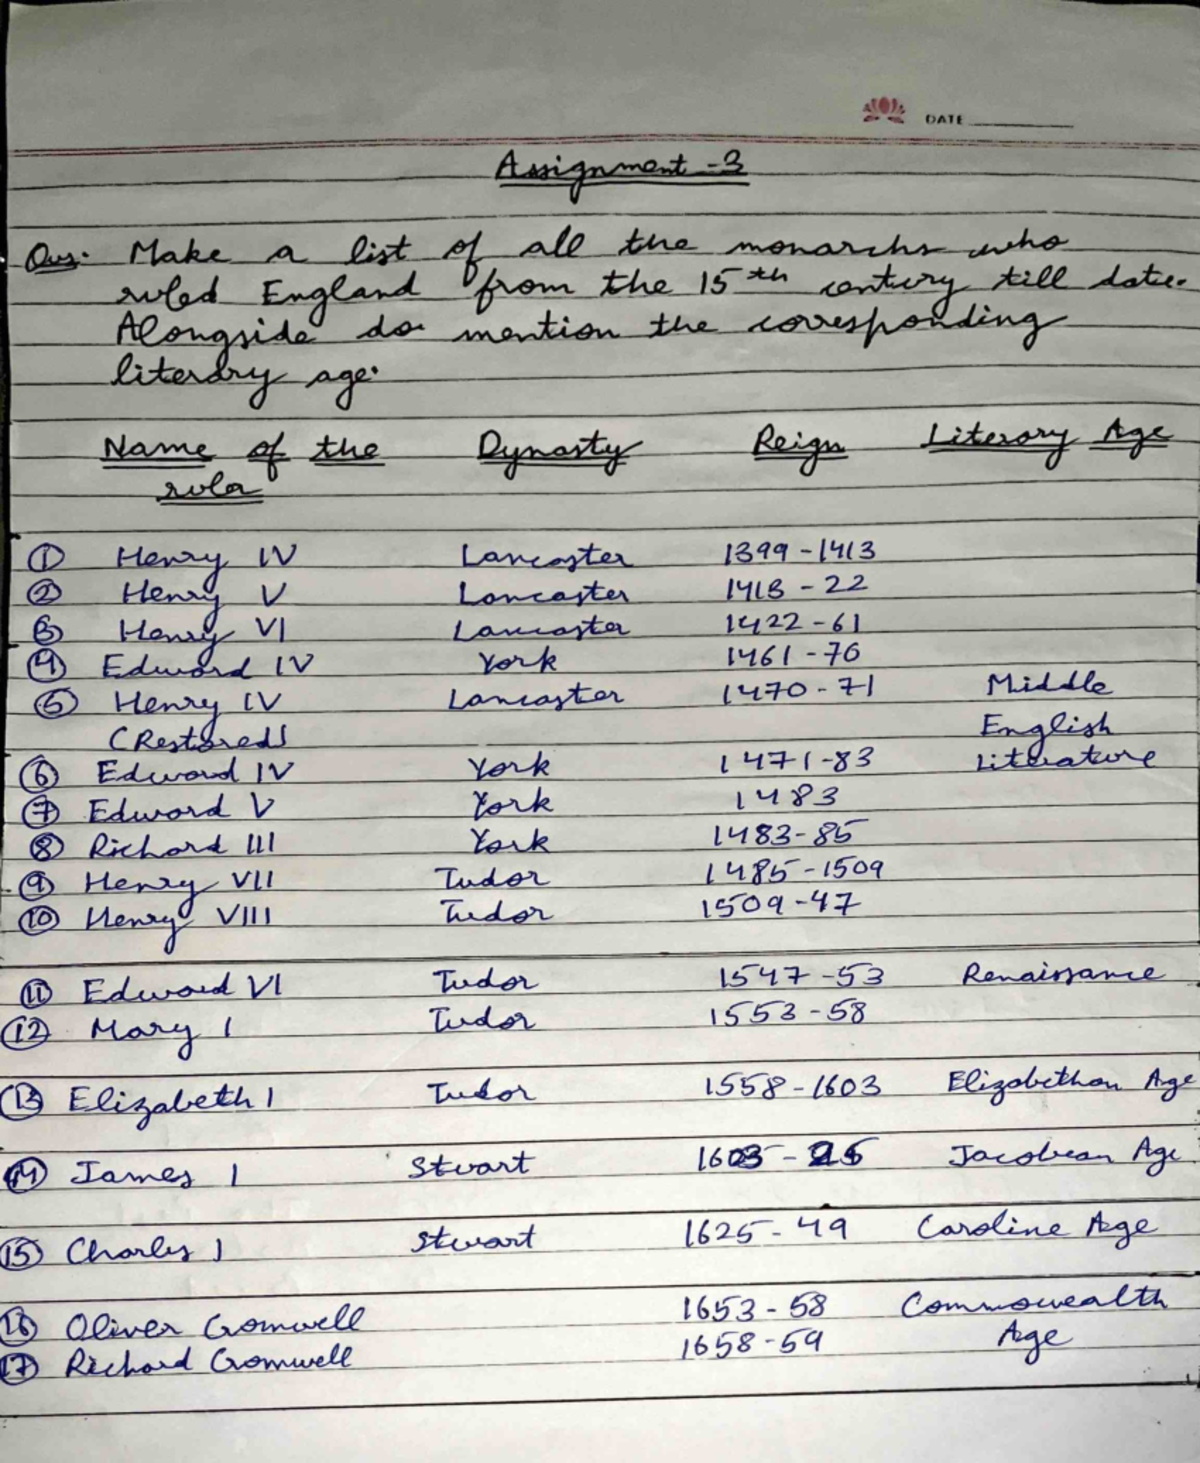 DATE
Assignment - 3
Ques. Make a list of all the monarchs who
ruled England from the 15th century till date.
Alongside do mention the corresponding
literary age.
Name of the Dynasty Reign Literary Age
ruler
① Henry IV Lancaster 1399 - 1413
② Henry V Lancaster 1413 - 22
③ Henry VI Lancaster 1422 - 61
④ Edward IV York 1461 - 70
⑤ Henry IV Lancaster 1470 - 71 Middle
(Restored) English
⑥ Edward IV York 1471 - 83 Literature
⑦ Edward V York 1483
⑧ Richard III York 1483 - 85
⑨ Henry VII Tudor 1485 - 1509
⑩ Henry VIII Tudor 1509 - 47
⑪ Edward VI Tudor 1547 - 53 Renaissance
⑫ Mary I Tudor 1553 - 58
⑬ Elizabeth I Tudor 1558 - 1603 Elizabethan Age
⑭ James I Stuart 1603 - 25 Jacobean Age
⑮ Charles I Stuart 1625 - 49 Caroline Age
⑯ Oliver Cromwell 1653 - 58 Commowealth
⑰ Richard Cromwell 1658 - 59 Age